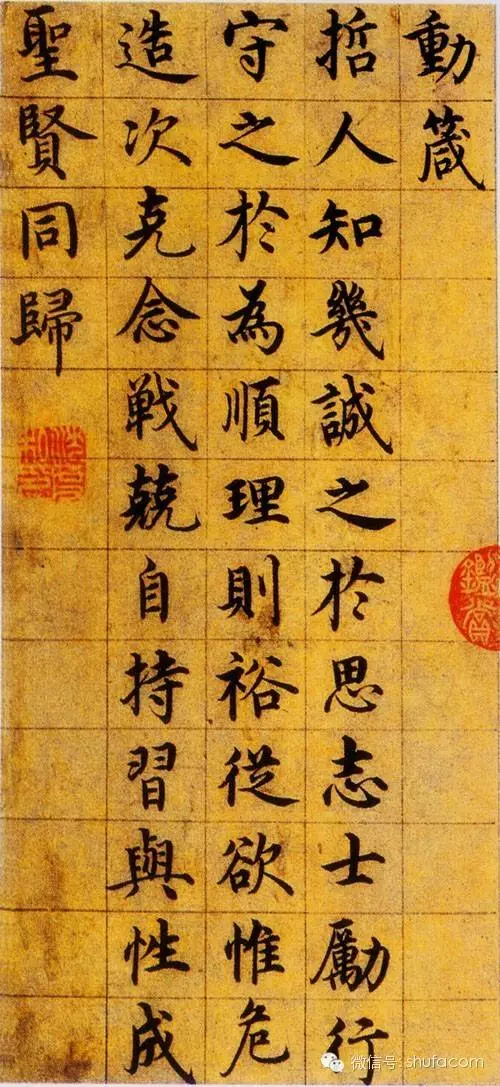 動箴
哲人知幾誠之於思志士勵行
守之於為順理則裕從欲惟危
造次克念戦兢自持習與性成
聖賢同歸
鑑賞
微信号: shufacom